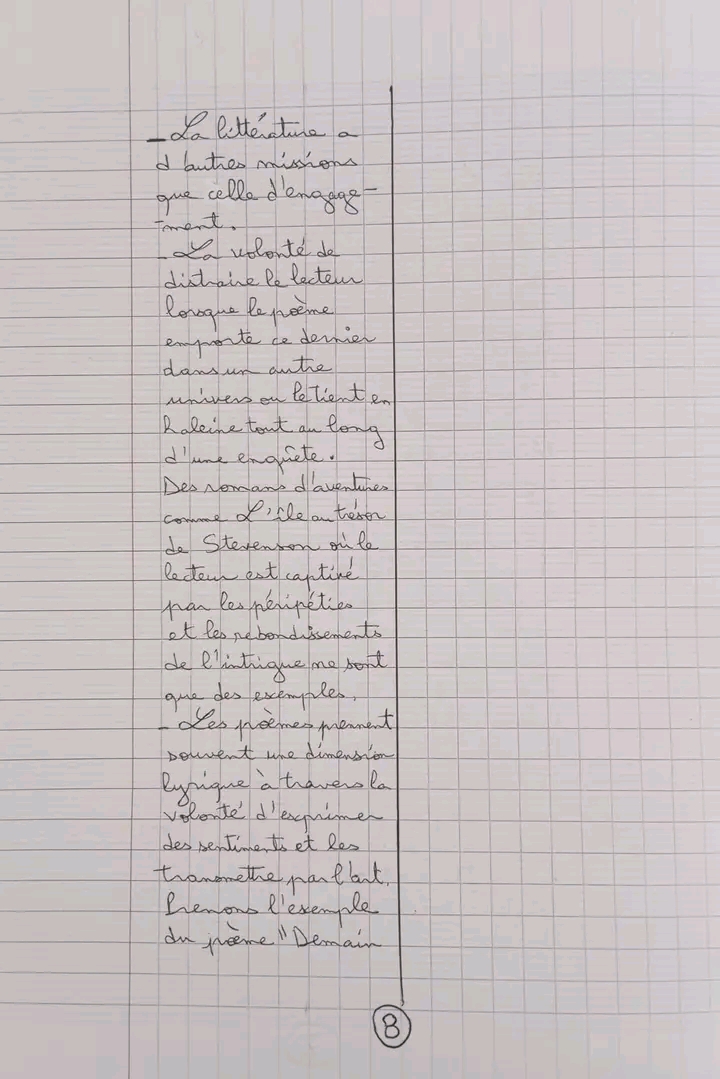 - La littérature a
d'autres missions
que celle d'engage-
-ment.
- La volonté de
distraire le lecteur
lorsque le poème
emporte ce dernier
dans un autre
univers ou le tient en
haleine tout au long
d'une enquête.
Des romans d'aventures
comme L'île au trésor
de Stevenson où le
lecteur est captivé
par les péripéties
et les rebondissements
de l'intrigue ne sont
que des exemples.
- Les poèmes prennent
souvent une dimension
lyrique à travers la
volonté d'exprimer
des sentiments et les
transmettre par l'art.
Prenons l'exemple
du poème "Demain
8